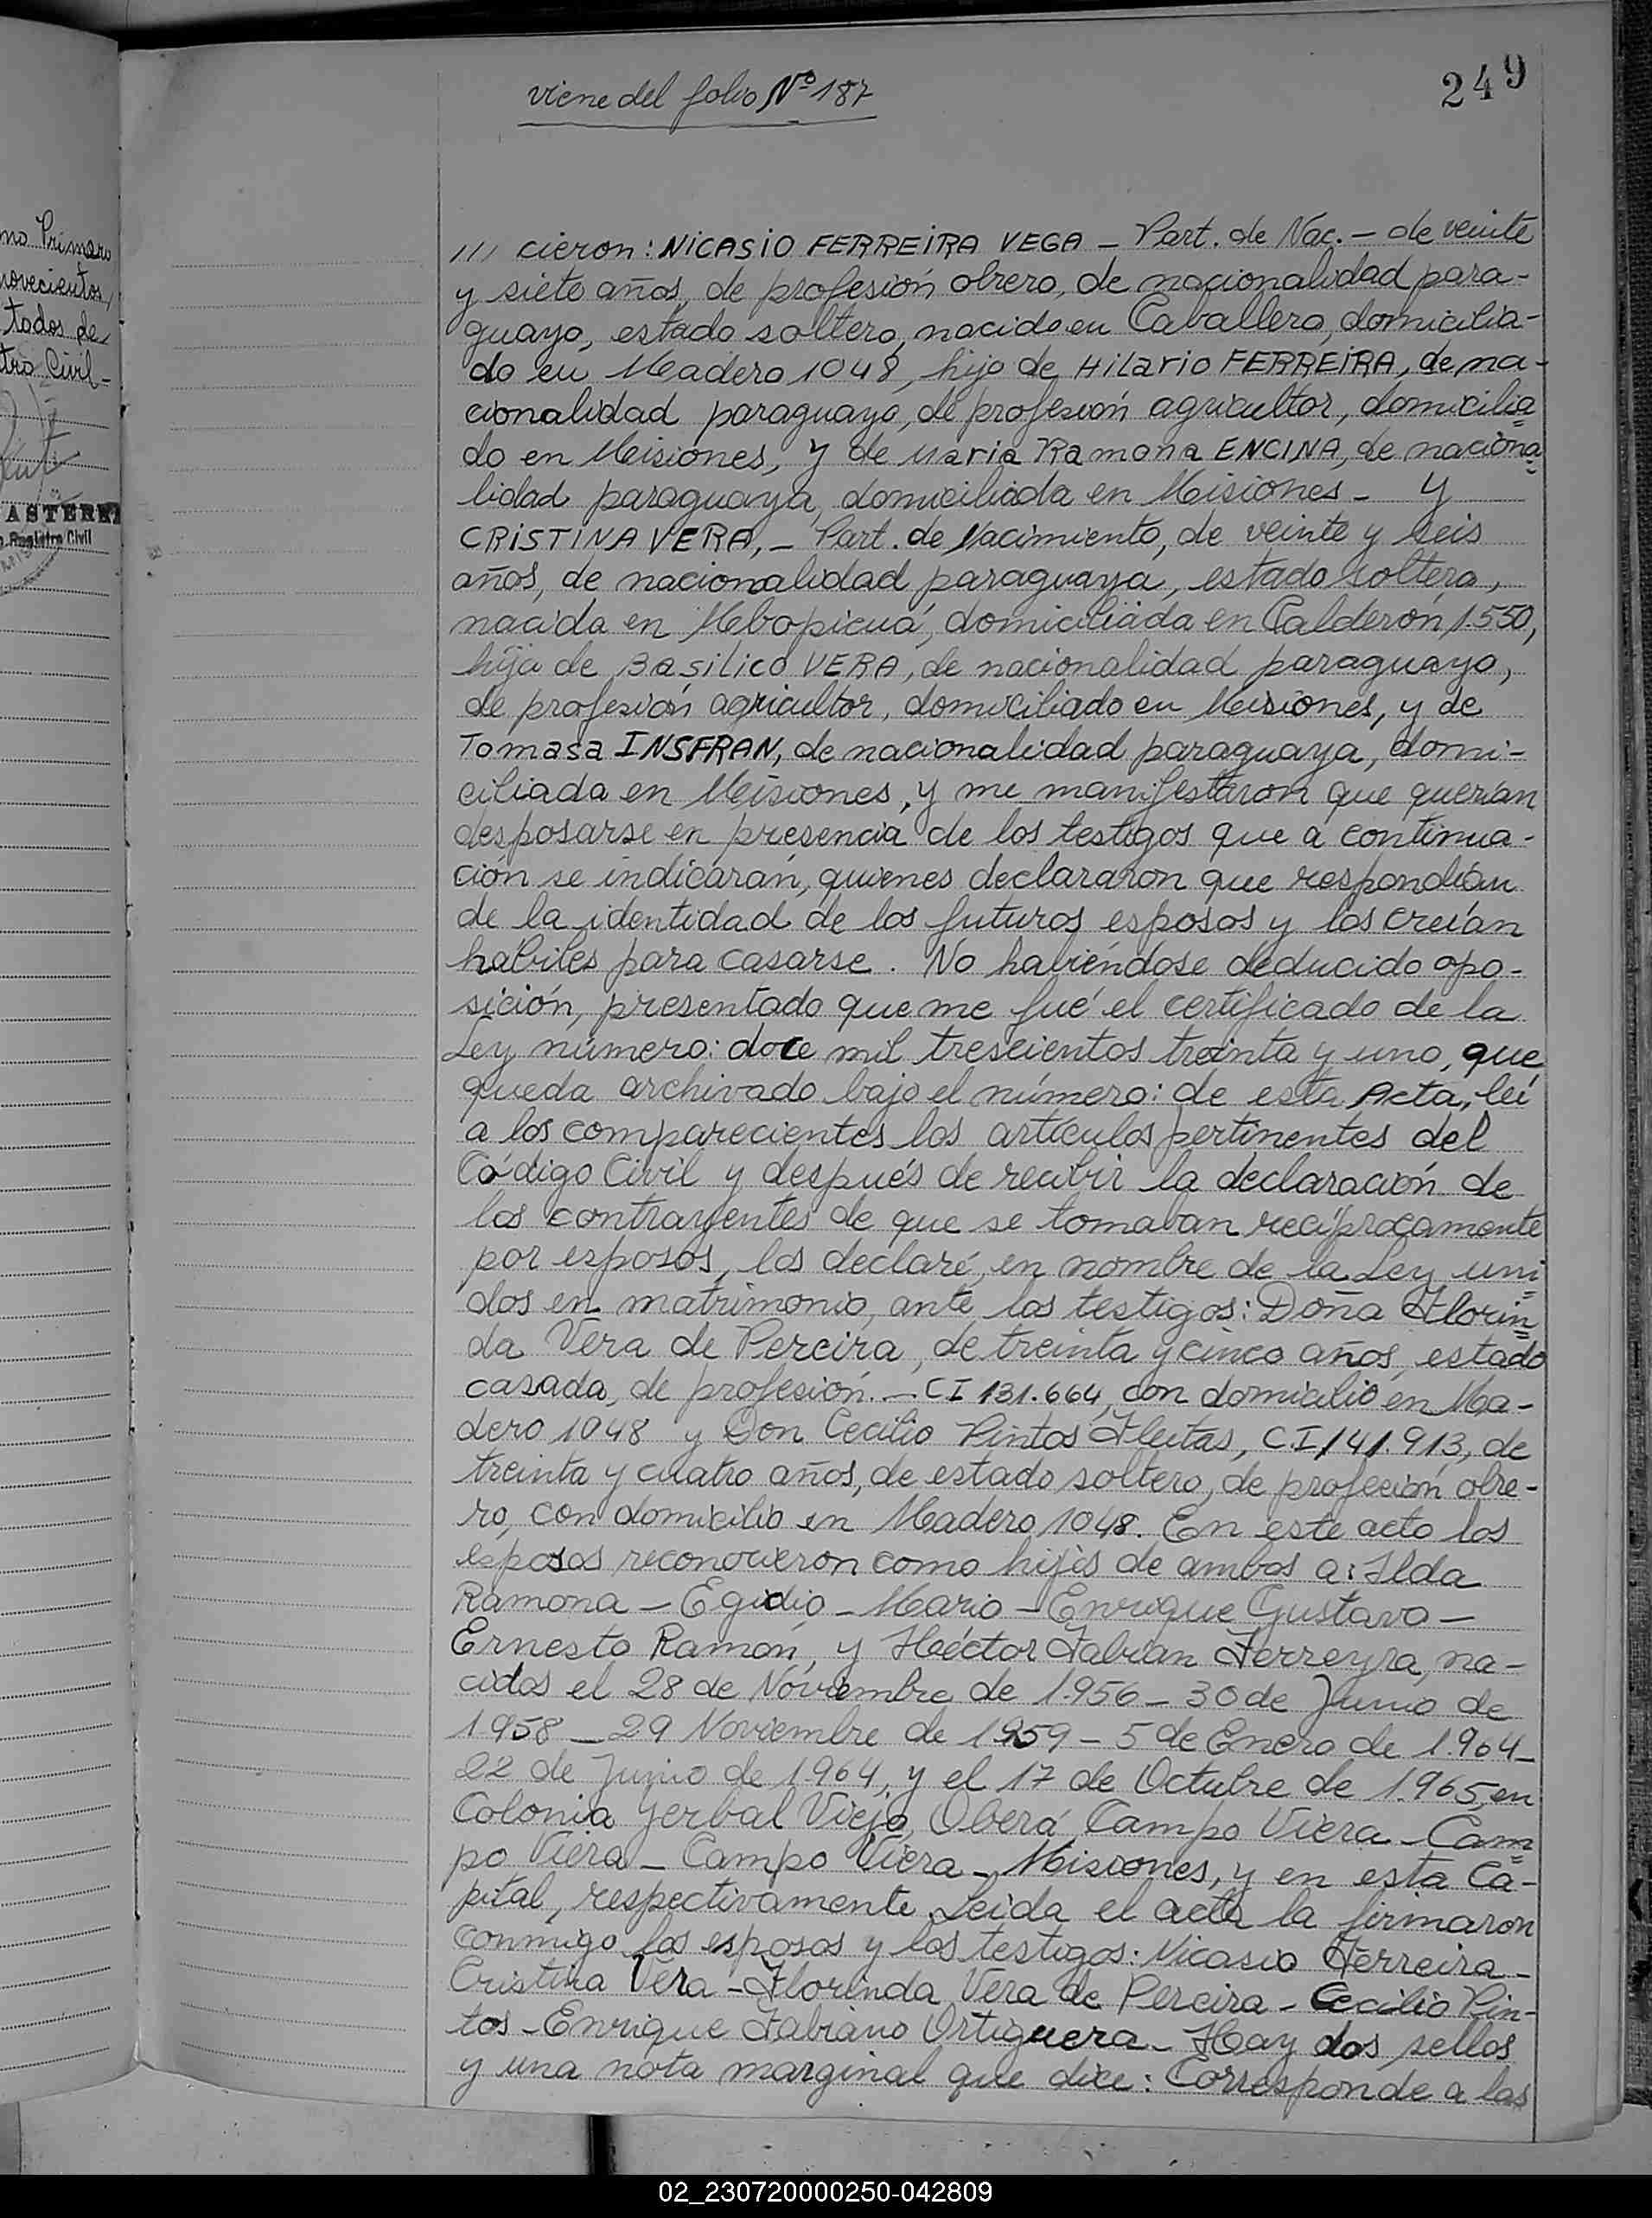 viene del folio Nº 187
249
mo Primero
novecientos,
tados de
tro Civil-
ASTERR
Registro Civil
/// cieron: NICASIO FERREIRA VEGA - Part. de Nac. - de veinte
y siete años, de profesión obrero, de nacionalidad para-
guayo, estado soltero, nacido en Caballero, domicilia-
do en Madero 1048, hijo de Hilario FERREIRA, de na-
cionalidad paraguayo, de profesión agricultor, domicilia=
do en Misiones, y de Maria Ramona ENCINA, de naciona=
lidad paraguaya, domiciliada en Misiones - y
CRISTINA VERA, - Part. de Nacimiento, de veinte y seis
años, de nacionalidad paraguaya, estado soltera,
nacida en Mbopicuá, domiciliada en Calderón 1550,
hija de Basilico VERA, de nacionalidad paraguayo,
de profesión agricultor, domiciliado en Misiones, y de
Tomasa INSFRAN, de nacionalidad paraguaya, domi-
ciliada en Misiones, y me manifestaron que querían
desposarse en presencia de los testigos que a continua-
ción se indicarán, quienes declararon que respondían
de la identidad de los futuros esposos y los creían
hábiles para casarse. No habiéndose deducido opo-
sición, presentado que me fué el certificado de la
Ley número: doce mil trescientos treinta y uno, que
queda archivado bajo el número: de esta Acta, leí
a los comparecientes los artículos pertinentes del
Código Civil y después de recibir la declaración de
los contrayentes de que se tomaban recíprocamente
por esposos, los declaré, en nombre de la Ley, uni=
dos en matrimonio, ante los testigos: Doña Florin=
da Vera de Pereira, de treinta y cinco años, estado
casada, de profesión. - CI 131.664, con domicilio en Ma-
dero 1048 y Don Cecilio Pintos Fleitas, C.I 141.913, de
treinta y cuatro años, de estado soltero, de profesión obre-
ro, con domicilio en Madero 1048. En este acto los
esposos reconocieron como hijos de ambos a: Ilda
Ramona - Egidio - Mario - Enrique Gustavo -
Ernesto Ramón, y Héctor Fabian Ferreyra, na-
cidos el 28 de Noviembre de 1956 - 30 de Junio de
1958 - 29 Noviembre de 1959 - 5 de Enero de 1.964 -
22 de Junio de 1964, y el 17 de Octubre de 1.965, en
Colonia Yerbal Viejo, Oberá, Campo Viera - Cam=
po Viera - Campo Viera - Misiones, y en esta Ca-
pital, respectivamente. Leída el acta la firmaron
conmigo los esposos y los testigos: Nicasio Ferreira -
Cristina Vera - Florinda Vera de Pereira - Cecilio Pin-
tos - Enrique Fabiano Ortiguera - Hay dos sellos
y una nota marginal que dice: Corresponde a las
02_230720000250-042809